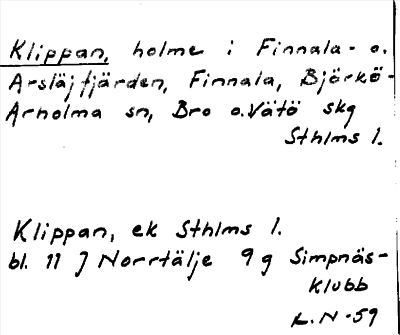 Klippan, holme i Finnala- o.
Arsläjfjärden, Finnala, Björkö-
Arholma sn, Bro o. Vätö skg
Sthlms l.
Klippan, ek Sthlms l.
bl. 11 J Norrtälje 9 g Simpnäs-
klubb
L.N -59